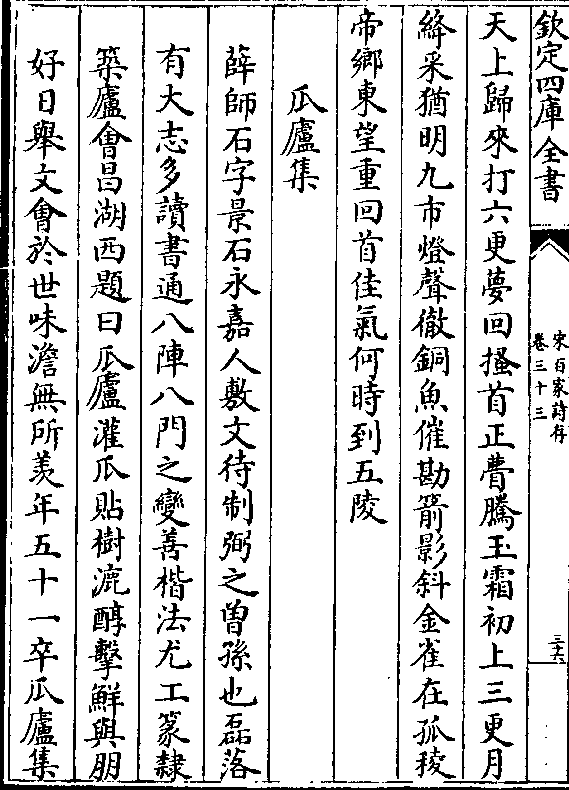 欽定四庫全書
宋百家詩存
卷三十三
三六
天上歸來打六更夢回搔首正瞢騰玉霜初上三更月
絳采猶明九市燈聲徹銅魚催勘箭影斜金雀在孤稜
帝鄉東望重回首佳氣何時到五陵
瓜廬集
薛師石字景石永嘉人敷文待制弼之曽孫也磊落
有大志多讀書通八陣八門之變善楷法尤工篆隸
築廬會昌湖西題曰瓜廬灌瓜貼樹漉醇擊鮮與朋
好日舉文會於世味澹無所羨年五十一卒瓜廬集